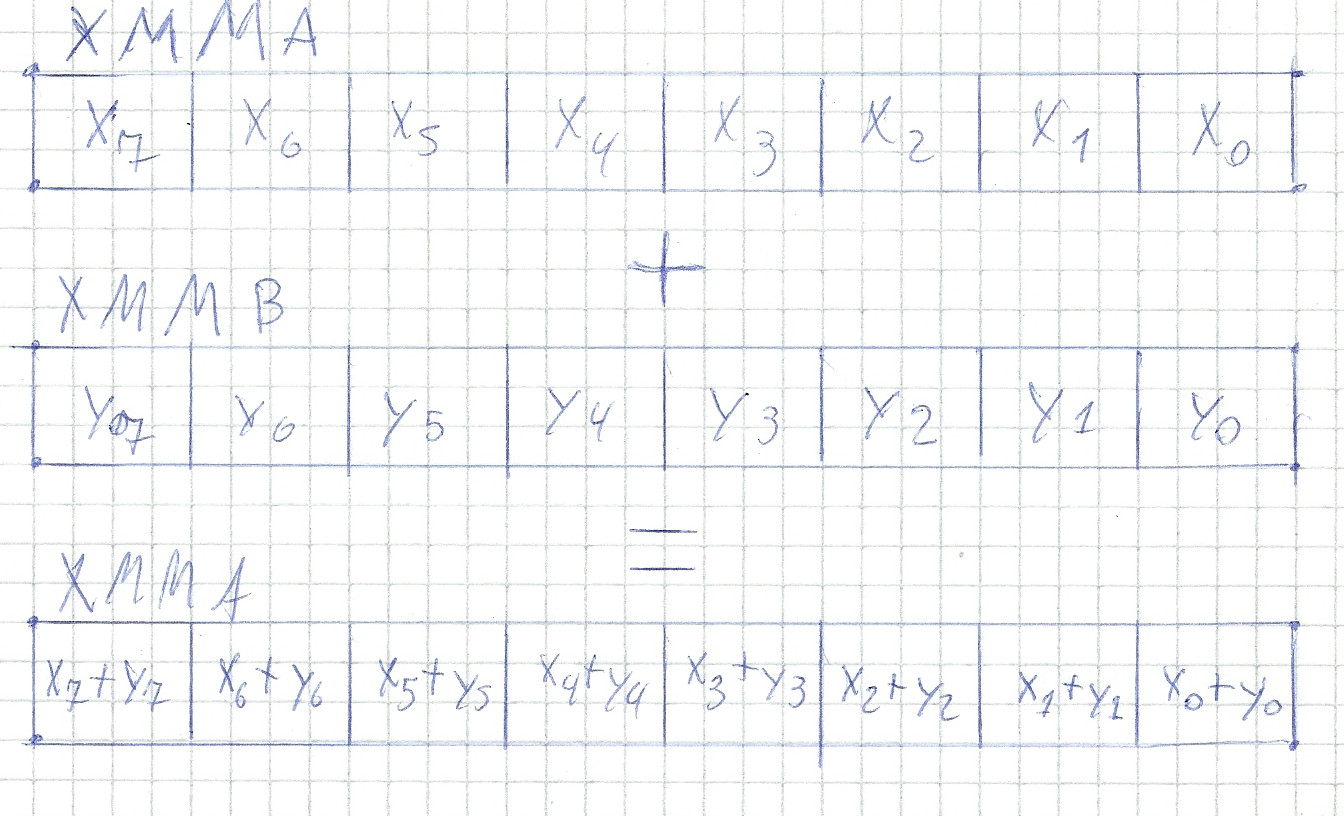 XMMA
X7 X6 X5 X4 X3 X2 X1 X0
+
XMMB
Y7 Y6 Y5 Y4 Y3 Y2 Y1 Y0
=
XMMA
X7+Y7 X6+Y6 X5+Y5 X4+Y4 X3+Y3 X2+Y2 X1+Y1 X0+Y0